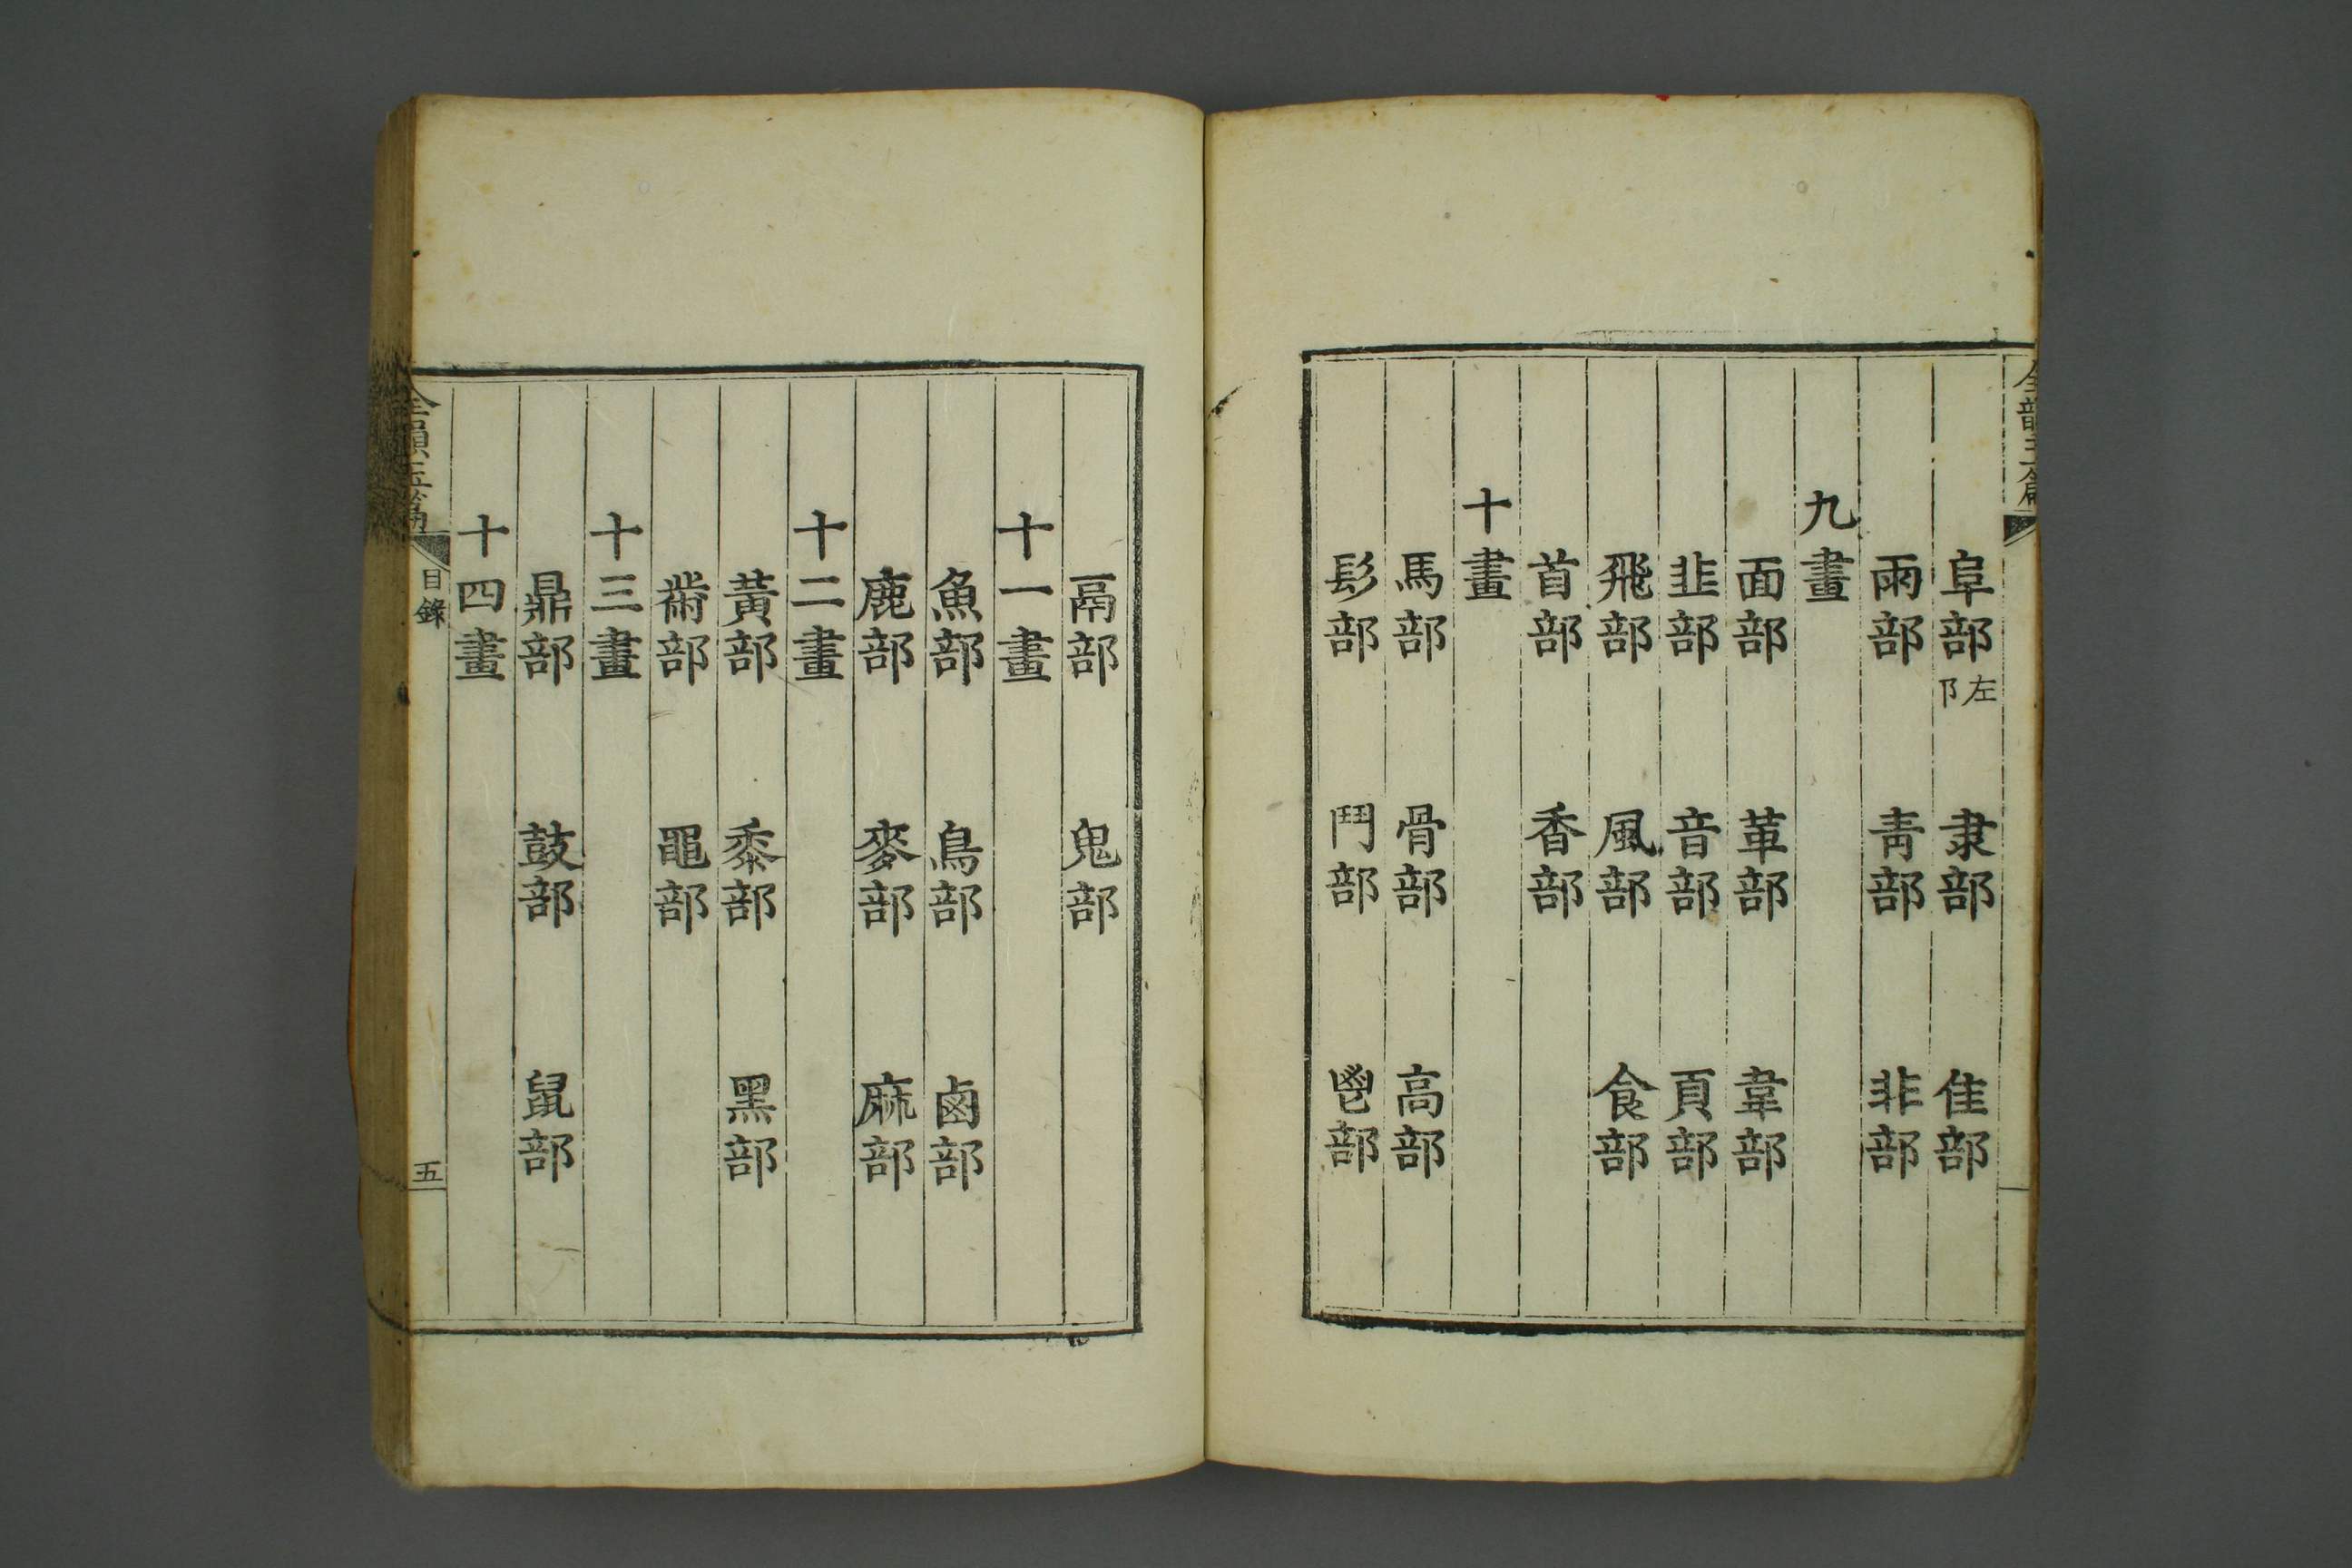 全韻玉篇
阜部左阝 隶部 隹部
雨部 靑部 非部
九畫
面部 革部 韋部
韭部 音部 頁部
飛部 風部 食部
首部 香部
十畫
馬部 骨部 高部
髟部 鬥部 鬯部
鬲部 鬼部
十一畫
魚部 鳥部 鹵部
鹿部 麥部 麻部
十二畫
黃部 黍部 黑部
黹部 黽部
十三畫
鼎部 鼓部 鼠部
十四畫
全韻玉篇 目錄 五